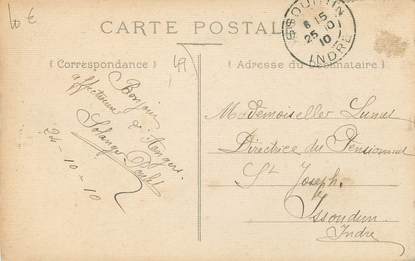 10 €
CARTE POSTALE
ISSOUDUN
6 15
25 10
10
INDRE
( Correspondance )
49
( Adresse du Destinataire )
Bonjour
affectueux
de
Solange
24-10-10
Mademoiselle Lunel
Directrice du Pensionnat
St Joseph.
Issoudun
Indre